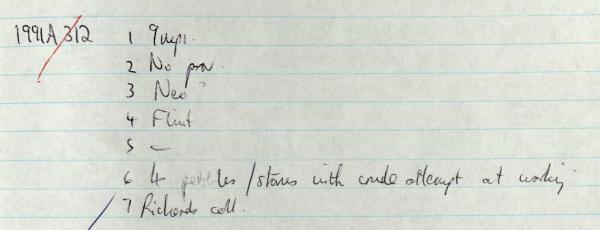 1991A 312 1 9 impl.
2 No prov.
3 Neo?
4 Flint
5 —
6 4 pebbles / stones with crude attempt at working
7 Richards coll.